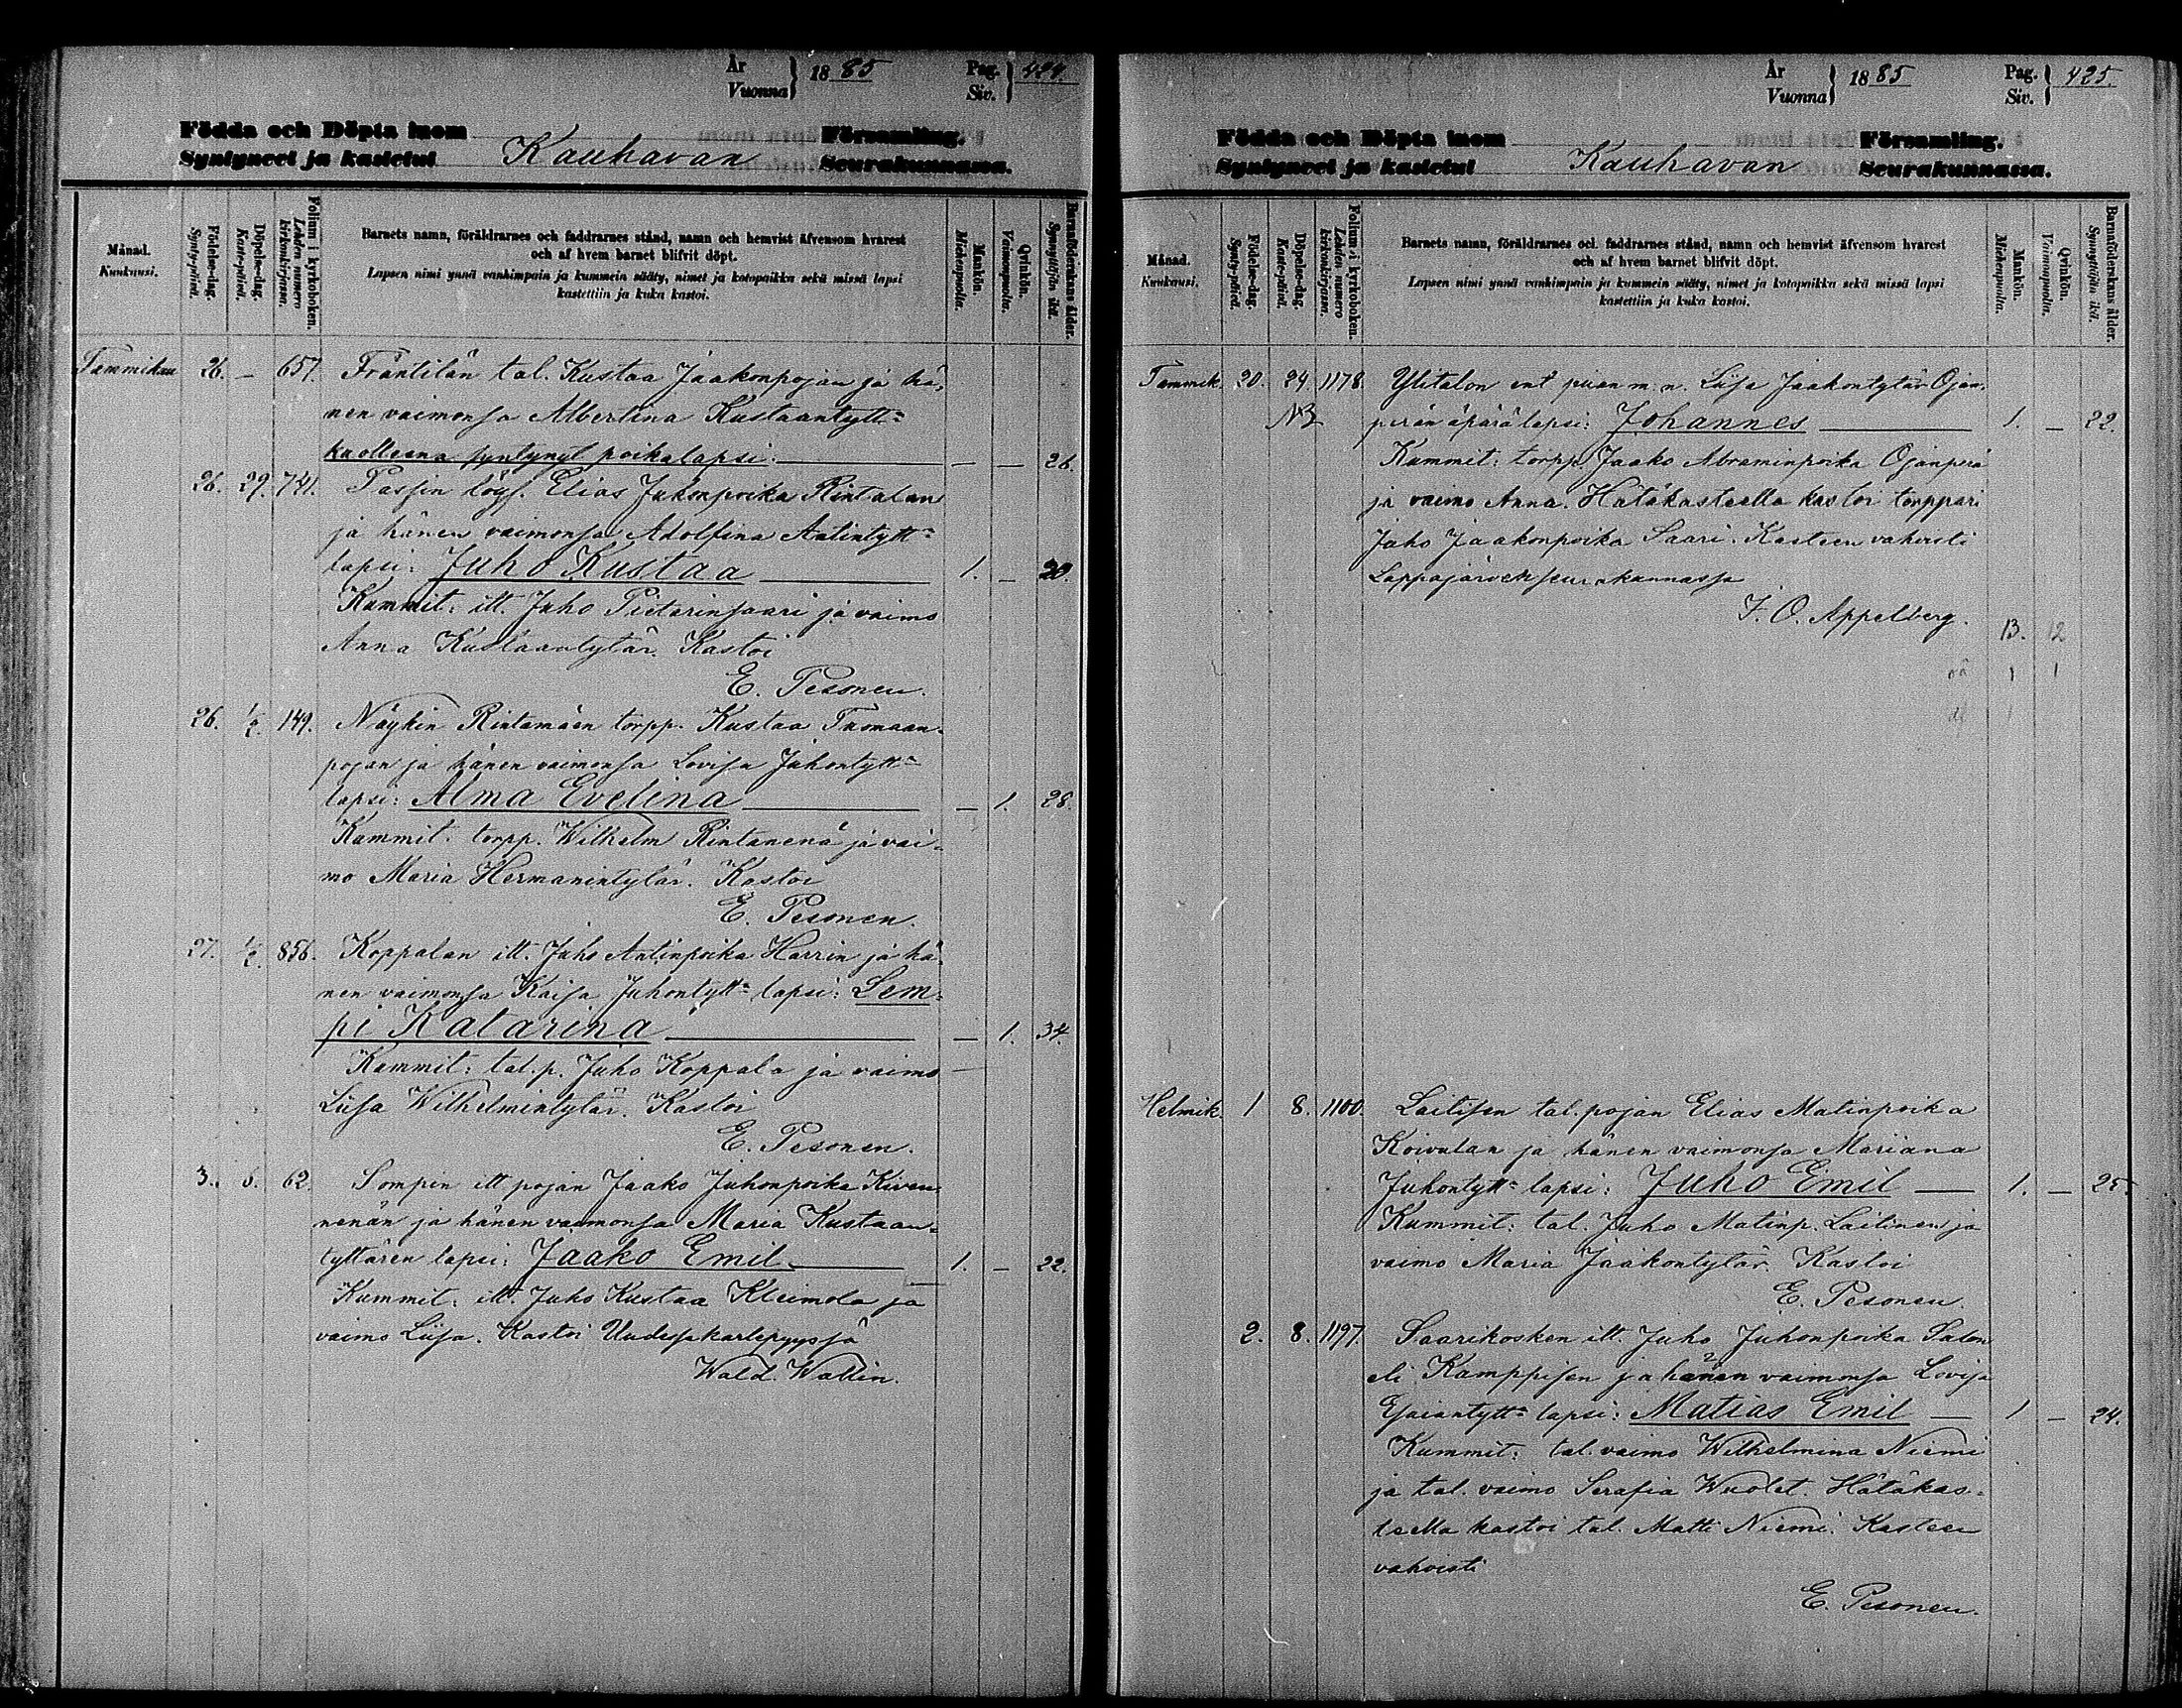 År Vuonna } 1885 Pag. Siv. } 424.
Födda och Döpta inom Kauhavan Församling.
Syntyneet ja kastetut Seurakunnassa.
Månad. Kuukausi.
Födelse-dag. Synty-päivä.
Döpelse-dag. Kaste-päivä.
Folium i kyrkoboken. Lehden numero kirkonkirjassa.
Barnets namn, föräldrarnes och faddrarnes stånd, namn och hemvist äfvensom hvarest
och af hvem barnet blifvit döpt.
Lapsen nimi ynnä vanhimpain ja kummein sääty, nimet ja kotopaikka sekä missä lapsi
kastettiin ja kuka kastoi.
Mankön. Miehenpuolta.
Qvinkön. Vaimonpuolta.
Barnaföderskans ålder. Synnyttäjän ikä.
Tammikuu 26. — 657. Fräntilän tal. Kustaa Jaakonpojan ja hä-
nen vaimonsa Albertina Kustaantytt=
kuolleena syntynyt poikalapsi. — — 26.
26. 29. 741. Passin löys. Elias Juhonpoika Rintalan
ja hänen vaimonsa Adolfina Antintytt=
lapsi: Juho Kustaa 1. — 20.
Kummit: itt. Juho Pietarinsaari ja vaimo
Anna Kustaantytär. Kastoi
E. Pesonen.
26. 1/2. 149. Näykin Rintamäen torpp. Kustaa Tuomaan-
pojan ja hänen vaimonsa Lovisa Juhontytt=
lapsi: Alma Evelina — 1. 28.
Kummit: torpp. Wilhelm Rintanenä ja vai-
mo Maria Hermanintytär. Kastoi
E. Pesonen.
27. 1/2. 856. Koppalan itt. Juho Antinpoika Harrin ja hä-
nen vaimonsa Kaisa Juhontytt= lapsi: Lem-
pi Katarina — 1. 34.
Kummit: tal.p. Juho Koppala ja vaimo
Liisa Wilhelmintytär. Kastoi
E. Pesonen.
3. 6. 62. Sompin itt pojan Jaako Juhonpoika Kiven-
nenän ja hänen vaimonsa Maria Kustaan-
tyttären lapsi: Jaako Emil 1. — 22.
Kummit: itt. Juho Kustaa Kleimola ja
vaimo Liisa. Kastoi Uudessakarlepyyssä
Wald. Wallin.
År Vuonna } 1885 Pag. Siv. } 425.
Födda och Döpta inom Kauhavan Församling.
Syntyneet ja kastetut Seurakunnassa.
Månad. Kuukausi.
Födelse-dag. Synty-päivä.
Döpelse-dag. Kaste-päivä.
Folium i kyrkoboken. Lehden numero kirkonkirjassa.
Barnets namn, föräldrarnes och faddrarnes stånd, namn och hemvist äfvensom hvarest
och af hvem barnet blifvit döpt.
Lapsen nimi ynnä vanhimpain ja kummein sääty, nimet ja kotopaikka sekä missä lapsi
kastettiin ja kuka kastoi.
Mankön. Miehenpuolta.
Qvinkön. Vaimonpuolta.
Barnaföderskans ålder. Synnyttäjän ikä.
Tammik. 20. 24. 1178. Ylitalon ent piian m. n. Liisa Jaakontytär Ojan-
NB perän äpärä lapsi: Johannes 1. — 22.
Kummit: torpp. Jaako Abraminpoika Ojanperä
ja vaimo Anna. Hätäkasteella kastoi torppari
Juho Jaakonpoika Saari. Kasteen vahvisti
Lappajärven seurakunnassa
F. O. Appelberg.
13. 12
1 1
Helmik. 1 8. 1100. Laitisen tal. pojan Elias Matinpoika
Koivulan ja hänen vaimonsa Mariana
Juhontytt= lapsi: Juho Emil 1. — 25.
Kummit: tal. Juho Matinp. Laitinen ja
vaimo Maria Jaakontytär. Kastoi
E. Pesonen.
2. 8. 1197. Saarikosken itt. Juho Juhonpoika Salon
eli Kamppisen ja hänen vaimonsa Lovisa
Esaiantytt= lapsi: Matias Emil 1 — 24.
Kummit: tal. vaimo Wilhelmina Niemi
ja tal. vaimo Serafia Wuolet. Hätäkas-
teella kastoi tal. Matti Niemi. Kasteen
vahvisti
E. Pesonen.